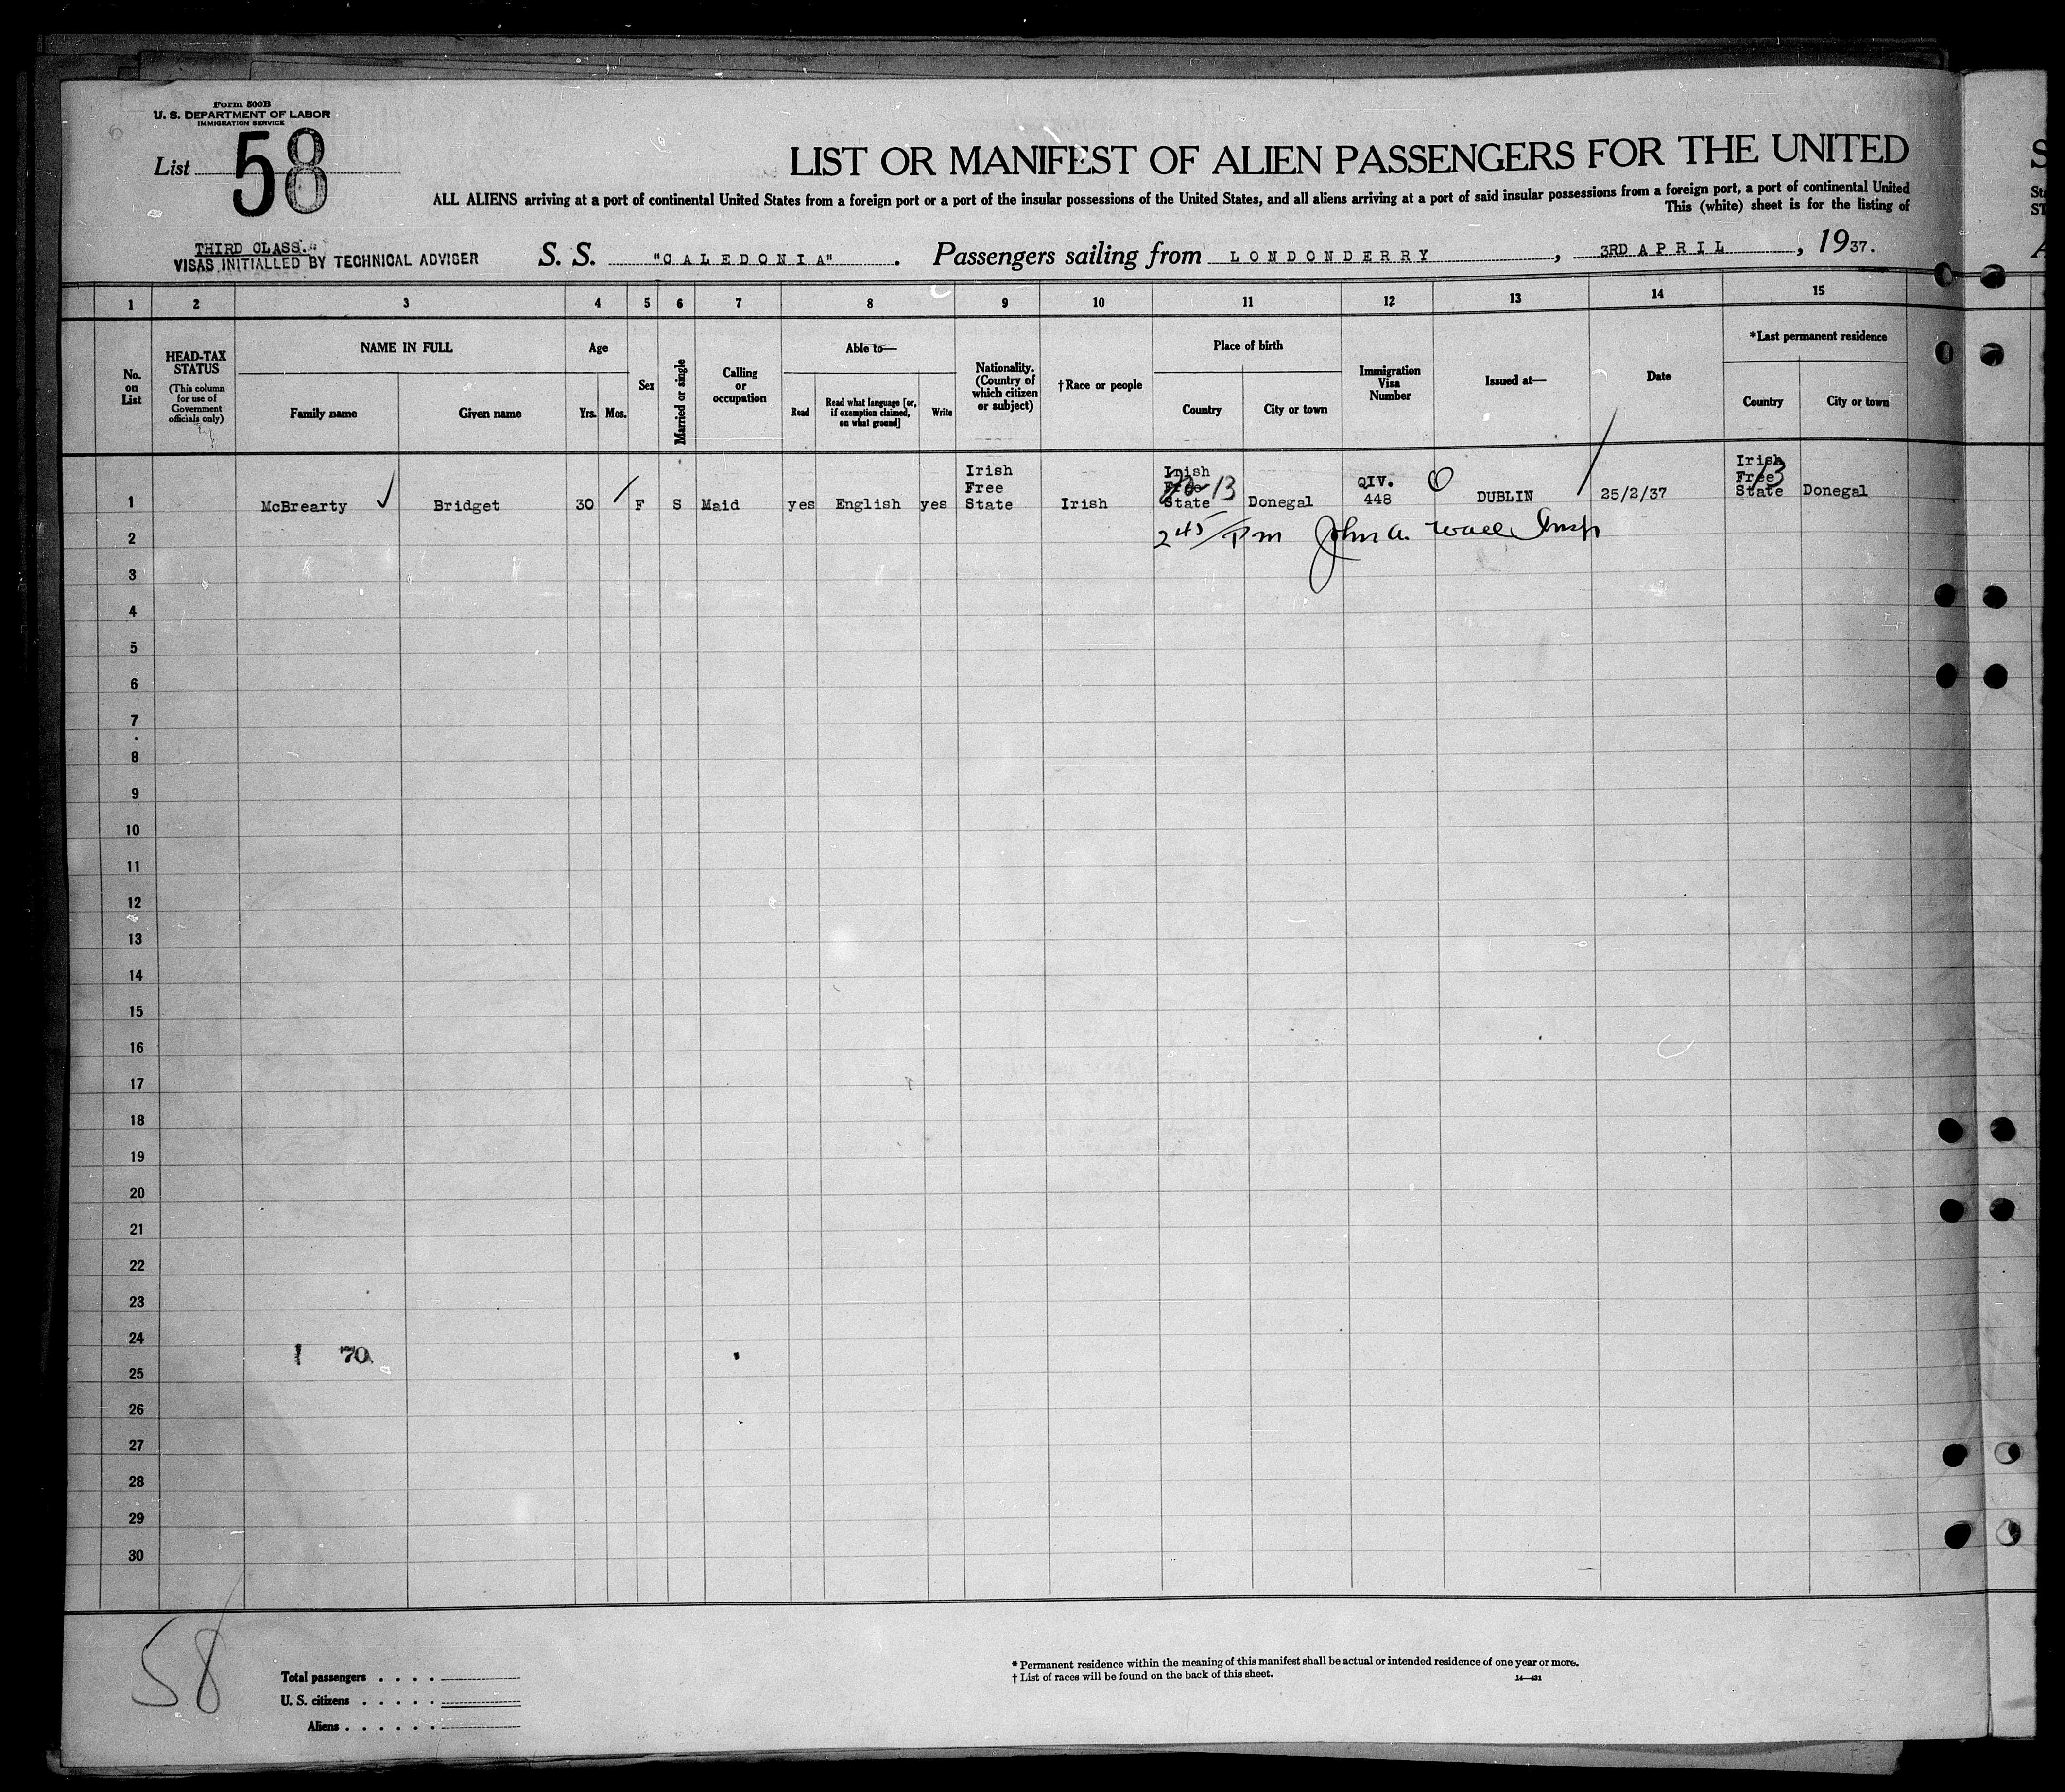 Form 500B
U. S. DEPARTMENT OF LABOR
IMMIGRATION SERVICE
List 58
LIST OR MANIFEST OF ALIEN PASSENGERS FOR THE UNITED
ALL ALIENS arriving at a port of continental United States from a foreign port or a port of the insular possessions of the United States, and all aliens arriving at a port of said insular possessions from a foreign port, a port of continental United
This (white) sheet is for the listing of
THIRD CLASS.
VISAS INITIALLED BY TECHNICAL ADVISER
S. S. "CALEDONIA" . Passengers sailing from LONDONDERRY , 3RD APRIL , 1937.
1 2 3 4 5 6 7 8 9 10 11 12 13 14 15
No. on List
HEAD-TAX STATUS
(This column for use of Government officials only)
NAME IN FULL
Family name
Given name
Age
Yrs.
Mos.
Sex
Married or single
Calling or occupation
Able to—
Read
Read what language [or, if exemption claimed, on what ground]
Write
Nationality. (Country of which citizen or subject)
†Race or people
Place of birth
Country
City or town
Immigration Visa Number
Issued at—
Date
*Last permanent residence
Country
City or town
1 McBrearty Bridget 30 F S Maid yes English yes Irish Free State Irish Irish Free State 13 Donegal QIV. 448 DUBLIN 25/2/37 Irish Free State 13 Donegal
2 2 45/Pm John A. Wall Insp
3
4
5
6
7
8
9
10
11
12
13
14
15
16
17
18
19
20
21
22
23
24
1 70
25
26
27
28
29
30
58
Total passengers
U. S. citizens
Aliens
* Permanent residence within the meaning of this manifest shall be actual or intended residence of one year or more.
† List of races will be found on the back of this sheet.